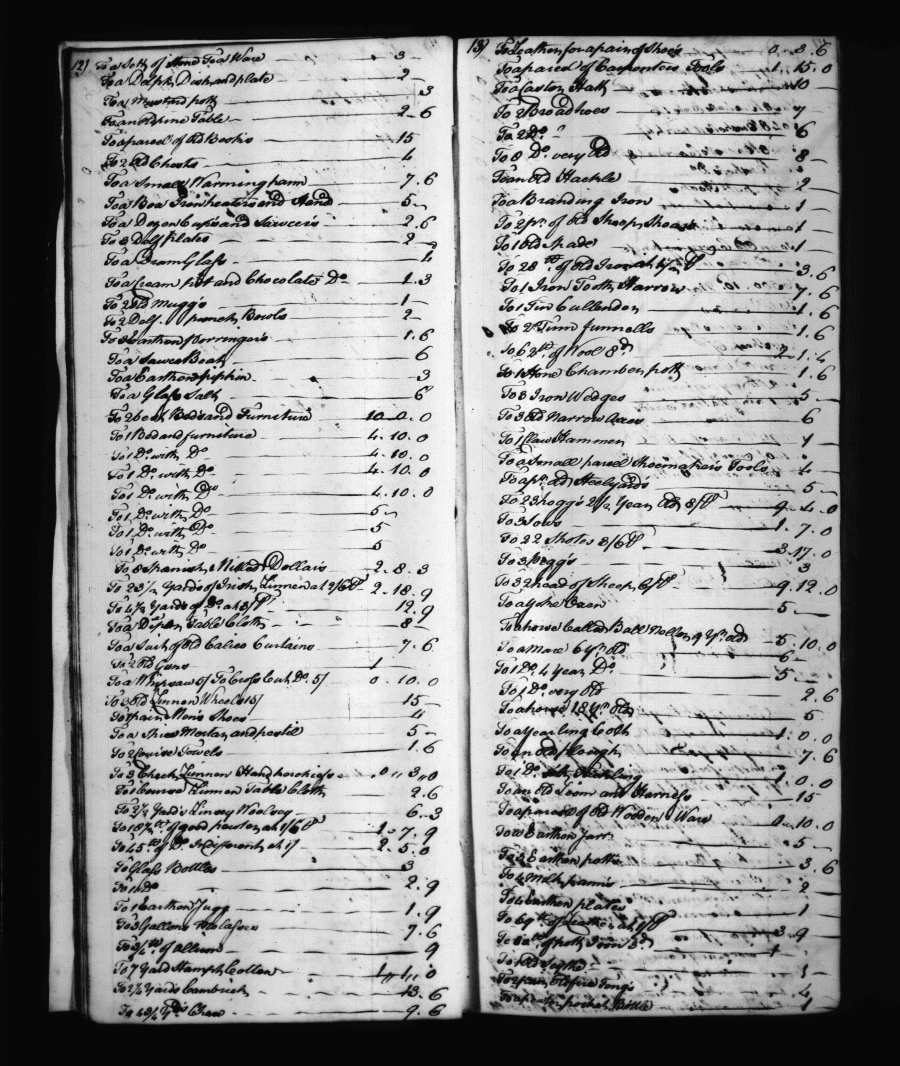 12)
To a Sett of Stone Tea Ware 3 -
To a Delph Dish and plate 2 -
To a Mustard pott 3
To an old pine Table 2 - 6
To a parcel of old Books 15
To 2 old Chests 4
To a Small Warming pann 7. 6
To a Box Iron heaters and Stand 5 -
To a Dozen Cups and Sawcers 2. 6
To 8 Delf plates 2 -
To a Dram Glass
To a Cream pot and Chocolate Do 1. 3
To 2 old Muggs 1 -
To 2 Delf. punch Bowls 2 -
To Earthen porringers 1. 6
To a Sawce Boat 6
To a Earthen pipkin 3
To a Glass Salt 6
To 2 best Beds and Furniture 10. 0. 0
To 1 Bed and furniture 4. 10. 0
To 1 Do with Do 4. 10. 0
To 1 Do with Do 4. 10. 0
To 1 Do with Do 4. 10. 0
To 1 Do with Do 5 -
To 1 Do with Do 5
To 1 Do with Do 5
To 8 Spanish Mill'd Dollars 2. 8. 3
To 23½ Yards of Irish Linnen at 2/6 P 2. 18. 9
To 4½ Yards of Do at 3/ P 12. 9
To a Diper Table Cloth 8
To a Suit of old Calico Curtains 7. 6
To 2 old Guns 1
To a Whipsaw 5/ To Cross Cut Do 5/ 0. 10. 0
To 3 old Linnen Wheels 15/ 15 -
To 1 pair Men's Shoes 4
To a Spice Mortar and pestil 5 -
To 2 Course Towels 1. 6
To 3 Check Linnen Handkerchiefs 0 " 3 " 0
To 1 Course Linnen Table Cloth 2. 6
To 2½ Yards Linsey Woolsey 6. 3
To 18½ lb of good pewter at 1/6 P 1. 7. 9
To 45 lb of Do Indifferent at 1/ 2. 5. 0
To Glass Bottles 3
To 1 Do 2. 9
To 1 Earthen Jugg 1. 9
To 3 Gallons Molasses 7. 6
To lb of Allum 9
To 7 Yard Hampt Cotton 1 " 1 " 0
To 2¼ Yards Cambrick 13. 6
To 4¾ Yds Chex 9. 6
13)
To Leather for a pair of Shoes 0. 3. 6
To a parcel of Carpenters Tools 1. 15. 0
To a Castor Hatt 10 -
To 2 Broad hoes 7
To 2 Do " 6
To 8 Do very old 8 -
To an old Hackle 2 -
To a Branding Iron 1
To 2 pr of old Sheep Shears 1 -
To 1 old Spade 1
To 28 lb of old Iron at P 3. 6
To 1 Iron Tooth Harrow 7. 6
To 1 Tin Cullender 1. 6
To 2 Tinn funnells 1. 6
To 62 lb of Wool 8d 2 - 1. 4
To 1 Stone Chamber pott 1. 6
To 3 Iron Wedges 5 -
To 3 old Narrow Axes 6
To 1 Claw Hammer 1 -
To a Small parcel Shoemakers Tools 4 -
To a pr old Steelyards 5 -
To 23 hoggs 2½ Years old 8/ P 9. 4. 0
To 3 Sows 1. 7. 0
To 22 Shotes 3/6 P 3. 17. 0
To 3 piggs 3
To 32 head of Sheep 6/ P 9. 12. 0
To a Yoke Oxen 5 -
To a horse Called Ball 9 Yrs old 5. 10. 0
To a Mare 6 Yrs old 6 -
To 1 Do 4 Year Do 5 -
To 1 Do very old 2. 6
To a horse 18 Yrs old 5
To a Yearling Coth 1. 0. 0
To an old plough 7. 6
To 1 Do 1. 0. 0
To an old Loom and Harness 15
To a parcel of old Wooden Ware 0. 10. 0
Earthen Jarr 5 -
To 3 Earthen potts 3. 6
To 4 Milk panns 2
To 4 Earthen plates 1
To 69 lb of leather at P 3. 9
To lb of pott Iron 3d
To 1 old Scythe 1 -
To 2 pair old fire Tongs 4
To a pewter pocket Bottle 1